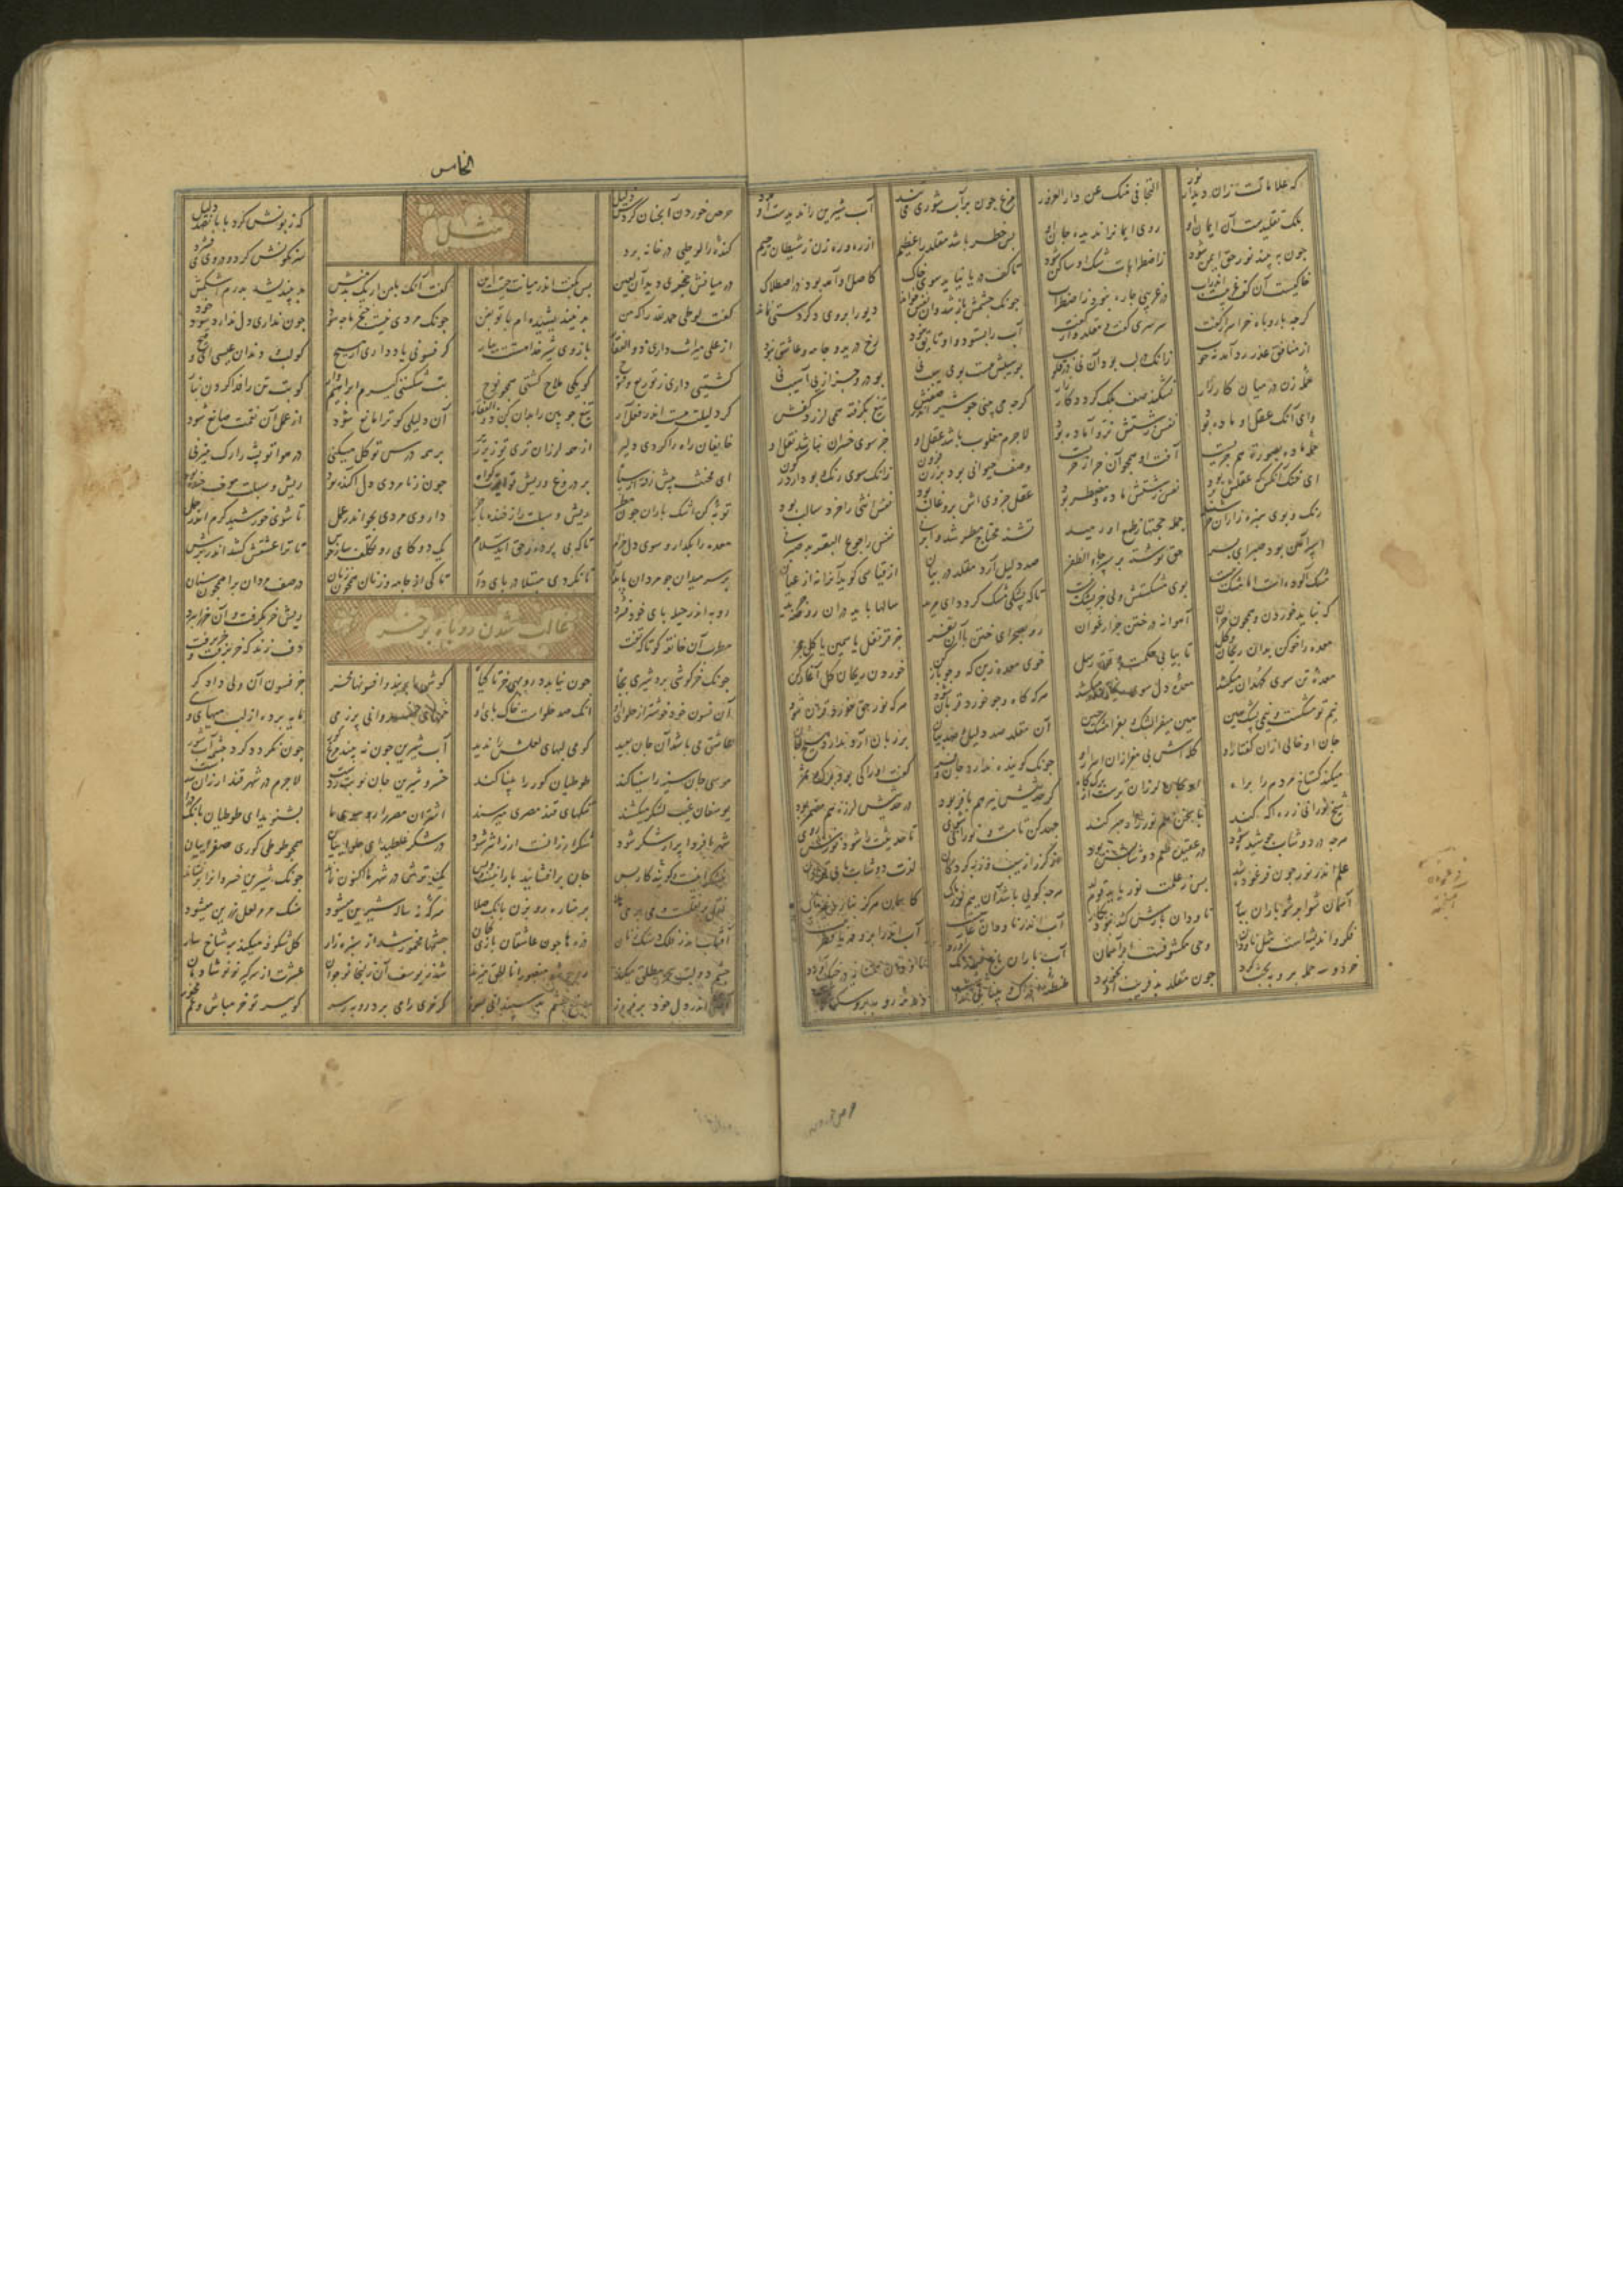 که علاماتست زان دیدار نور التجافی منک عن دار الغرور مرغ چون بر آب شوری می تند آب شیرین را ندیدست او مدد
بلک تقلیدست آن ایمان او روی ایمانرا ندیده جان او بس خطر باشد مقلد را عظیم از ره و ره زن ز شیطان رجیم
چون ببیند نور حق ایمن شود ز اضطرابات شک او ساکن شود تا کف دریا نیاید سوی خاک کاصل او آمد بود در اصطکاک
خاکیست آن کف غریبست اندر آب در غریبی چاره نبود ز اضطراب چونک چشمش باز شد وان نقش خواند دیو را بر وی دگر دستی نماند
گرچه با روباه خر اسرار گفت سرسری گفت و مقلدوار گفت آب را بستود و او تایق نبود رخ درید و جامه و عاشق نبود
از منافق عذر رد آمد نه خوب زانک در لب بود آن نی در قلوب بوی سیبش هست بوی سیب نی بو درو جز از پی آسیب نی
حمله زن در میان کارزار نشکند صف بلک گردد کار زار گرچه می بینی چو شیر اندر صفش تیغ بگرفته همی لرزد کفش
وای آنک عقل او ماده بود نفس زشتش نر و آماده بود لاجرم مغلوب باشد عقل او جز سوی خسران نباشد نقل او
حمله ماده بصورت هم جریست آفت او همچو آن خر از خریست وصف حیوانی بود بر زن فزون زانک سوی رنگ و بو دارد رکون
ای خنک آنکس که عقلش نر بود نفس زشتش ماده و مضطر بود عقل جزوی اش برو غالب بود نفس انثی را خرد سالب بود
رنگ و بوی سبزه زار آن خر شنید جمله حجتها ز طبع او رمید تشنه محتاج مطر شد و ابر نی نفس را جوع البقر بد صبر نی
اسپر آهن بود صبر ای پدر حق نوشته بر سپر جاء الظفر صد دلیل آرد مقلد در بیان از قیاسی گوید آنرا نه از عیان
مشک آلودست الا مشک نیست بوی مشکستش ولی جز پشک نیست تا که پشکی مشک گردد ای مرید سالها باید در آن روضه چرید
که نباید خوردن و جو همچون خران آهوانه در ختن چر ارغوان رو بصحرای ختن با آن نفر جز قرنفل یاسمین یا گل مچر
معده را خو کن بدان ریحان و گل تا بیابی حکمت و قوت رسل خوی معده زین که و جو باز کن خوردن ریحان گل آغاز کن
معده تن سوی کهدان میکشد معده دل سوی ریحان میکشد هر که کاه و جو خورد قربان شود هر که نور حق خورد قرآن شود
نیم تو مشکست و نیمی پشک هین هین میفزا پشک و بفزا مشک چین آن مقلد صد دلیل و صد بیان بر زبان آرد ندارد هیچ جان
جان او خالی ازان گفتار او کله اش بی مغز ازان اسرار او چونک گوینده ندارد جان و فر گفت او را کی بود برگ و ثمر
میکند گستاخ مردم را براه او بجان لرزان ترست از برگ کاه در حدیثش لرزه هم مضمر بود
شیخ نورانی ز ره آگه کند با سخن هم نور را همره کند جهد کن تا مست و نورانی شوی تا حدیثت را شود نورش روی
هرچه در دوشاب جوشیده شود در عقیده طعم دوشابش بود
علم اندر نور چون فرغوده شد پس ز علمت نور یابد قوم لد هرچه گویی باشد آن هم نورناک کاسمان هرگز نبارد غیر پاک
آسمان شو ابر شو باران ببار ناودان بارش کند نبود بکار آب اندر ناودان عاریتیست آب اندر ابر و دریا فطرتیست
فکر و اندیشه است مثل ناودان وحی مکشوفست ابر و آسمان آب باران باغ صد رنگ آورد
خر دو سه حمله برو به بحث کرد چون مقلد بد فریب او بخورد
الخامس
حرص خوردن آنچنان کردش ذلیل که زبونش کرد با پانصد دلیل
مثل
کنده را لوطی در خانه برد سرنگونش کرد و در وی می فشرد
در میانش خنجری دید آن لعین پس بگفتش اندر میانت چیست این گفت آنک با من ار یک بدمنش بد بیندیشد بدرم اشکمش
گفت لوطی حمد لله را که من بد نیندیشیده ام با تو بفن چونک مردی نیست خنجرها چه سود چون نداری دل ندارد سود خود
از علی میراث داری ذوالفقار بازوی شیر خدا هستت بیار گر فسونی یاد داری از مسیح کو لب و دندان عیسی ای وقیح
کشتیی داری ز توزیع و فتوح کو یکی ملاح کشتی همچو نوح بت شکستی گیرم ابراهیم وار کو بت تن را فدا کردن بنار
گر دلیلت هست اندر فعل آر تیغ چوبین را بدان کن ذوالفقار آن دلیلی کو ترا مانع شود از عمل آن نقمت صانع شود
خایفان راه را کردی دلیر از همه لرزان تری تو زیر زیر بر همه درس توکل میکنی در هوا تو پشه را رگ میزنی
ای مخنث پیش رفته از سپاه بر دروغ ریش تو کیرت گواه چون ز نامردی دل آکنده بود ریش و سبلت موجب خنده بود
توبه کن اشک باران چون مطر ریش و سبلت را ز خنده باز خر داروی مردی بخور اندر عمل تا شوی خورشید گرم اندر حمل
معده را بگذار و سوی دل خرام تا که بی پرده ز حق آید سلام یک دو گامی رو تکلف ساز خوش تا ترا عشقش کشد اندر برش
بر سر میدان چو مردان پای دار تا نگردی مبتلا در پای دار تا کی از جامه زنان همچون زنان در صف مردان درآ همچون سنان
غالب شدن روباه بر خر
روبه اندر حیله پای خود فشرد ریش خر بگرفت و آن خر را ببرد
مطرب آن خانقه کو تا که تفت دف زند که خر برفت و خر برفت
چونک خرگوشی برد شیری بچاه چون نیارد روبهی خر تا گیاه گوش را بربند و افسونها مخور جز فسون آن ولی دادگر
آن فسون خود خوشتر از حلوای او آنک صد حلواست خاک پای او خسروانی پر ز می مایه برده از لب
عاشق می باشد آن جان بعید کو می لبهای لعلش را ندید آب شیرین چون نبیند مرغ کور چون نگردد گرد چشمه آب شور
موسی جان سینه را سینا کند طوطیان کور را بینا کند خسرو شیرین جان نوبت زدست لاجرم در شهر قند ارزان شدست
یوسفان غیب لشکر میکشند تنگهای قند مصری میرسند اشتران مصر را رو سوی ما بشنوید ای طوطیان بانگ درا
شهر ما فردا پر از شکر شود شکر ارزانست ارزانتر شود در شکر غلطید ای حلواییان همچو طوطی کوری صفراییان
جان برافشانید یار اینست و بس یک ترش در شهر ما اکنون نماند چونک شیرین خسروانرا برنشاند
نقل بر نقلست و می بر می هلا بر مناره رو بزن بانگ صلا سرکه نه ساله شیرین میشود سنگ مرمر لعل زرین میشود
آفتاب اندر فلک دستک زنان ذره ها چون عاشقان بازی کنان چشمها مخمور شد از سبزه زار گل شکوفه میکند بر شاخ سار
چشم دولت سحر مطلق میکند روح شد منصور انا الحق میزند شد ز یوسف آن زلیخا نوجوان عشرت از سر گیر تو نو شادمان
اندر دل خود برفروز دفع چشم بد سپندانی بسوز گر خری را می برد روبه ز سر گو ببر تو خر مباش و غم مخور